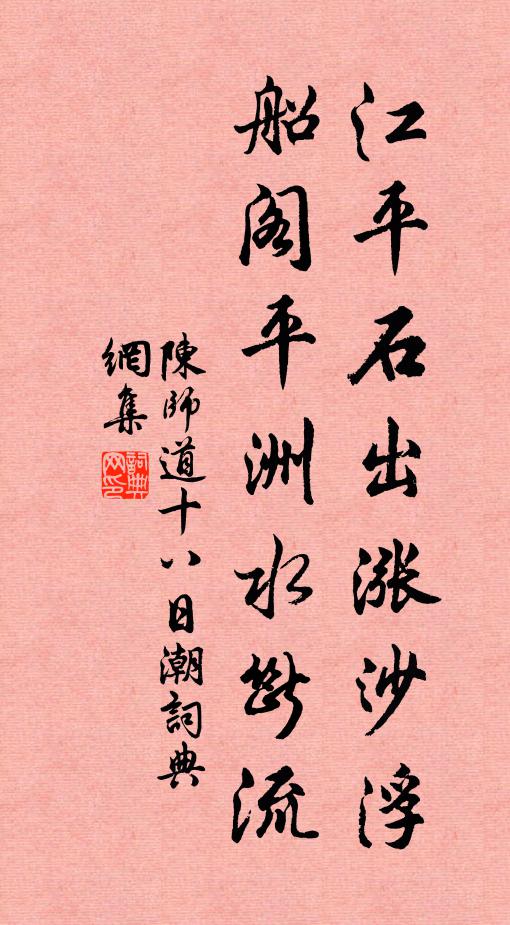 江平石出涨沙浮
船阁平洲水断流
陳師道十八日潮詞典
網集
詞典網印